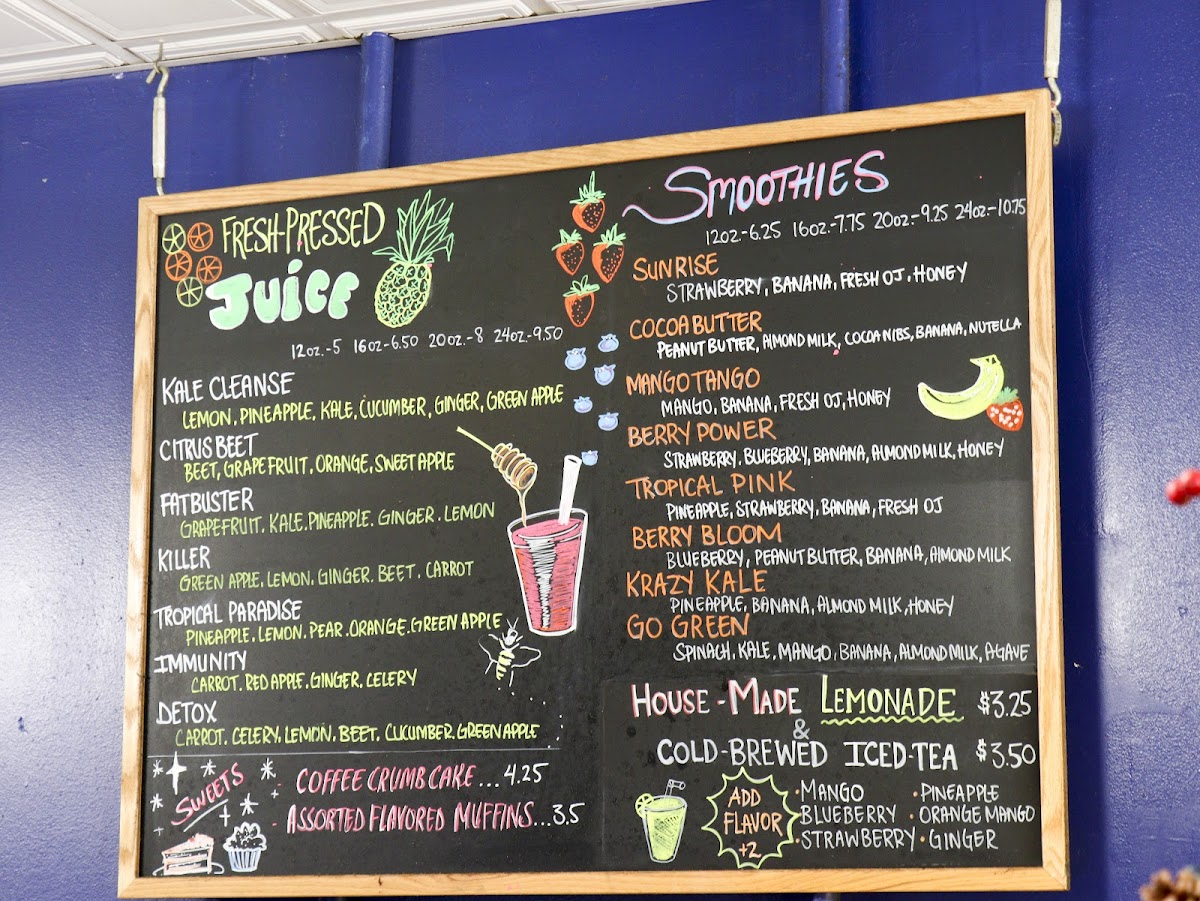 FRESH-PRESSED
JUICE
12oz.-5 16oz-6.50 20oz.-8 24oz-9.50
KALE CLEANSE
LEMON, PINEAPPLE, KALE, CUCUMBER, GINGER, GREEN APPLE
CITRUS BEET
BEET, GRAPEFRUIT, ORANGE, SWEET APPLE
FATBUSTER
GRAPEFRUIT, KALE, PINEAPPLE, GINGER, LEMON
KILLER
GREEN APPLE, LEMON, GINGER, BEET, CARROT
TROPICAL PARADISE
PINEAPPLE, LEMON, PEAR, ORANGE, GREEN APPLE
IMMUNITY
CARROT, RED APPLE, GINGER, CELERY
DETOX
CARROT, CELERY, LEMON, BEET, CUCUMBER, GREEN APPLE
SWEETS
COFFEE CRUMB CAKE...4.25
ASSORTED FLAVORED MUFFINS...3.5
SMOOTHIES
12oz.-6.25 16oz.-7.75 20oz.-9.25 24oz.-10.75
SUNRISE
STRAWBERRY, BANANA, FRESH OJ, HONEY
COCOA BUTTER
PEANUT BUTTER, ALMOND MILK, COCOA NIBS, BANANA, NUTELLA
MANGO TANGO
MANGO, BANANA, FRESH OJ, HONEY
BERRY POWER
STRAWBERRY, BLUEBERRY, BANANA, ALMOND MILK, HONEY
TROPICAL PINK
PINEAPPLE, STRAWBERRY, BANANA, FRESH OJ
BERRY BLOOM
BLUEBERRY, PEANUT BUTTER, BANANA, ALMOND MILK
KRAZY KALE
PINEAPPLE, BANANA, ALMOND MILK, HONEY
GO GREEN
SPINACH, KALE, MANGO, BANANA, ALMOND MILK, AGAVE
HOUSE-MADE LEMONADE $3.25
&
COLD-BREWED ICED-TEA $3.50
ADD
FLAVOR
+2
•MANGO •PINEAPPLE
•BLUEBERRY •ORANGE MANGO
•STRAWBERRY •GINGER